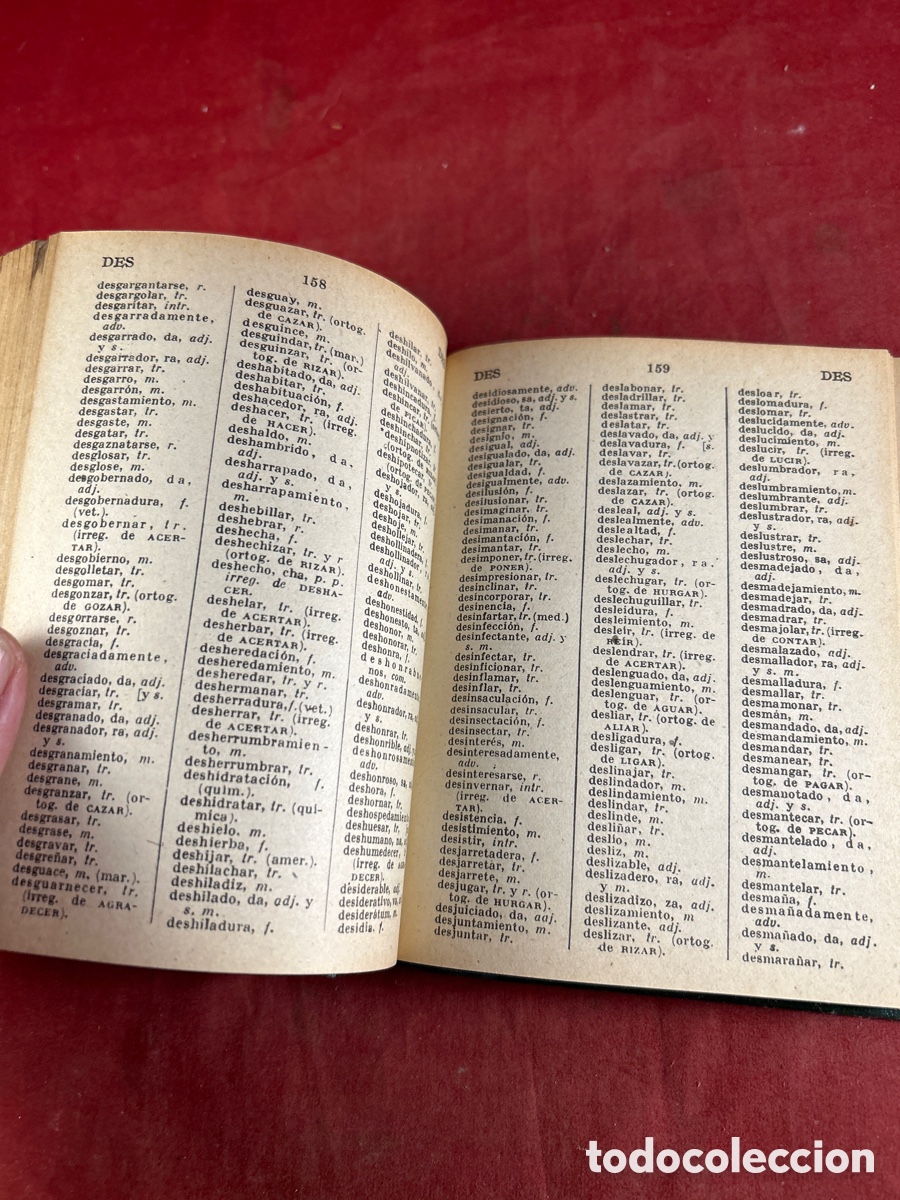 DES
158
desgargantarse, r.
desgargolar, tr.
desgaritar, intr.
desgarradamente,
adv.
desgarrado, da, adj.
y s.
desgarrador, ra, adj.
desgarrar, tr.
desgarro, m.
desgarrón, m.
desgastamiento, m.
desgastar, tr.
desgaste, m.
desgatar, tr.
desgaznatarse, r.
desglosar, tr.
desglose, m.
desgobernado, da,
adj.
desgobernadura, f.
(vet.)
desgobernar, tr.
(irreg. de ACER-
TAR).
desgobierno, m.
desgolletar, tr.
desgomar, tr.
desgonzar, tr. (ortog.
de GOZAR).
desgorrarse, r.
desgoznar, tr.
desgracia, f.
desgraciadamente,
adv.
desgraciado, da, adj.
desgraciar, tr. [y s.
desgramar, tr.
desgranado, da, adj.
desgranador, ra, adj.
y s.
desgranamiento, m.
desgranar, tr.
desgrane, m.
desgranzar, tr. (or-
tog. de CAZAR).
desgrasar, tr.
desgrase, m.
desgravar, tr.
desgreñar, tr.
desguace, m, (mar.)
desguarnecer, tr.
(irreg. de AGRA-
DECER).
desguay, m.
desguazar, tr. (ortog.
de CAZAR).
desguince, m.
desguindar, tr. (mar.)
desguinzar, tr. (or-
tog. de RIZAR).
deshabitado, da, adj.
deshabitar, tr.
deshabituación, f.
deshacedor, ra, adj.
deshacer, tr. (irreg.
de HACER).
deshaldo, m.
deshambrido, da,
adj.
desharrapado, da,
adj. y s.
desharrapamiento,
m.
deshebillar, tr.
deshebrar, tr.
deshecha, f.
deshechizar, tr. y r.
(ortog. de RIZAR).
deshecho, cha, p. p.
irreg. de DESHA-
CER.
deshelar, tr. (irreg.
de ACERTAR).
desherbar, tr. (irreg.
de ACERTAR).
desheredación, f.
desheredamiento, m.
desheredar, tr. y r.
deshermanar, tr.
desherradura, f. (vet.)
desherrar, tr. (irreg.
de ACERTAR).
desherrumbramien-
to, m.
desherrumbrar, tr.
deshidratación, f.
(quim.)
deshidratar, tr. (quí-
mica).
deshielo, m.
deshierba, f.
deshijar, tr. (amer.)
deshilachar, tr.
deshiladiz, m.
deshilado, da, adj. y
s. m.
deshiladura, f.
deshilar, tr.
deshilo, m.
deshilvanado,
adj.
deshilvanar,
deshincadura,
deshincar
de PICAR
deshinchadura
deshinchar,
deshojador
y s.
deshojadura, f.
deshojar, tr.
deshoje, m.
deshollejar, tr.
deshollinador
y s.
deshollinar, tr.
deshonestamente
adv.
deshonestidad, f.
deshonesto, ta, adj.
deshonor, m.
deshonorar, tr.
deshonra, f.
nos, com.
deshonradamente
adv.
deshonrador, ra,
y s.
deshonrar, tr.
deshonrible, adj.
deshonrosamente,
adv.
deshonroso, sa,
deshora, f.
deshornar, tr.
deshospedamiento
deshuesar, tr.
deshumano, na,
deshumedecer,
(irreg. de
DECER).
desiderable, adj.
desiderativo, va,
desiderátum, m.
desidia, f.
DES
159
DES
desidiosamente, adv.
desidioso, sa, adj. y s.
desierto, ta, adj.
designación, f.
designar, tr.
designio, m.
desigual, adj.
desigualado, da, adj.
desigualar, tr.
desigualdad, f.
desigualmente, adv.
desilusión, f.
desilusionar, tr.
desimaginar, tr.
desimanación, f.
desimanar, tr.
desimantación, f.
desimantar, tr.
desimponer, tr. (irreg.
de PONER).
desimpresionar, tr.
desinclinar, tr.
desincorporar, tr.
desinencia, f.
desinfartar, tr. (med.)
desinfección, f.
desinfectante, adj. y
s. m.
desinfectar, tr.
desinficionar, tr.
desinflamar, tr.
desinflar, tr.
desinsaculación, f.
desinsacular, tr.
desinsectación, f.
desinsectar, tr.
desinterés, m.
desinteresadamente,
adv.
desinteresarse, r.
desinvernar, intr.
(irreg. de ACER-
TAR).
desistencia, f.
desistimiento, m.
desistir, intr.
desjarretadera, f.
desjarretar, tr.
desjarrete, m.
desjugar, tr. y r. (or-
tog. de HURGAR).
desjuiciado, da, adj.
desjuntamiento, m.
desjuntar, tr.
deslabonar, tr.
desladrillar, tr.
deslamar, tr.
deslastrar, tr.
deslatar, tr.
deslavado, da, adj. y
deslavadura, f. [s.
deslavar, tr.
deslavazar, tr. (ortog.
de CAZAR).
deslazamiento, m.
deslazar, tr. (ortog.
de CAZAR).
desleal, adj. y s.
deslealmente, adv.
deslealtad, f.
deslechar, tr.
deslecho, m.
deslechugador, ra,
adj. y s.
deslechugar, tr. (or-
tog. de HURGAR).
deslechuguillar, tr.
desleidura, f.
desleimiento, m.
desleír, tr. (irreg. de
REÍR).
deslendrar, tr. (irreg.
de ACERTAR).
deslenguado, da, adj.
deslenguamiento, m.
deslenguar, tr. (or-
tog. de AGUAR).
desliar, tr. (ortog. de
ALIAR).
desligadura, f.
desligar, tr. (ortog.
de LIGAR).
deslinajar, tr.
deslindador, m.
deslindamiento, m.
deslindar, tr.
deslinde, m.
desliñar, tr.
deslio, m.
desliz, m.
deslizable, adj.
deslizadero, ra, adj.
y m.
deslizadizo, za, adj.
deslizamiento, m
deslizante, adj.
deslizar, tr. (ortog.
de RIZAR).
desloar, tr.
deslomadura, f.
deslomar, tr.
deslucidamente, adv.
deslucido, da, adj.
deslucimiento, m.
deslucir, tr. (irreg.
de LUCIR).
deslumbrador, ra,
adj.
deslumbramiento, m.
deslumbrante, adj.
deslumbrar, tr.
deslustrador, ra, adj.
y s.
deslustrar, tr.
deslustre, m.
deslustroso, sa, adj.
desmadejado, da,
adj.
desmadejamiento, m.
desmadejar, tr.
desmadrado, da, adj.
desmadrar, tr.
desmajolar, tr. (irreg.
de CONTAR).
desmalazado, adj.
desmallador, ra, adj.
y s.
desmalladura, f.
desmallar, tr.
desmamonar, tr.
desmán, m.
desmandado, da, adj.
desmandamiento, m.
desmandar, tr.
desmanear, tr.
desmangar, tr. (or-
tog. de PAGAR).
desmanotado, da,
adj. y s.
desmantecar, tr. (or-
tog. de PECAR).
desmantelado, da,
adj.
desmantelamiento,
m.
desmantelar, tr.
desmaña, f.
desmañadamente,
adv.
desmañado, da, adj.
y s.
desmarañar, tr.
todocoleccion